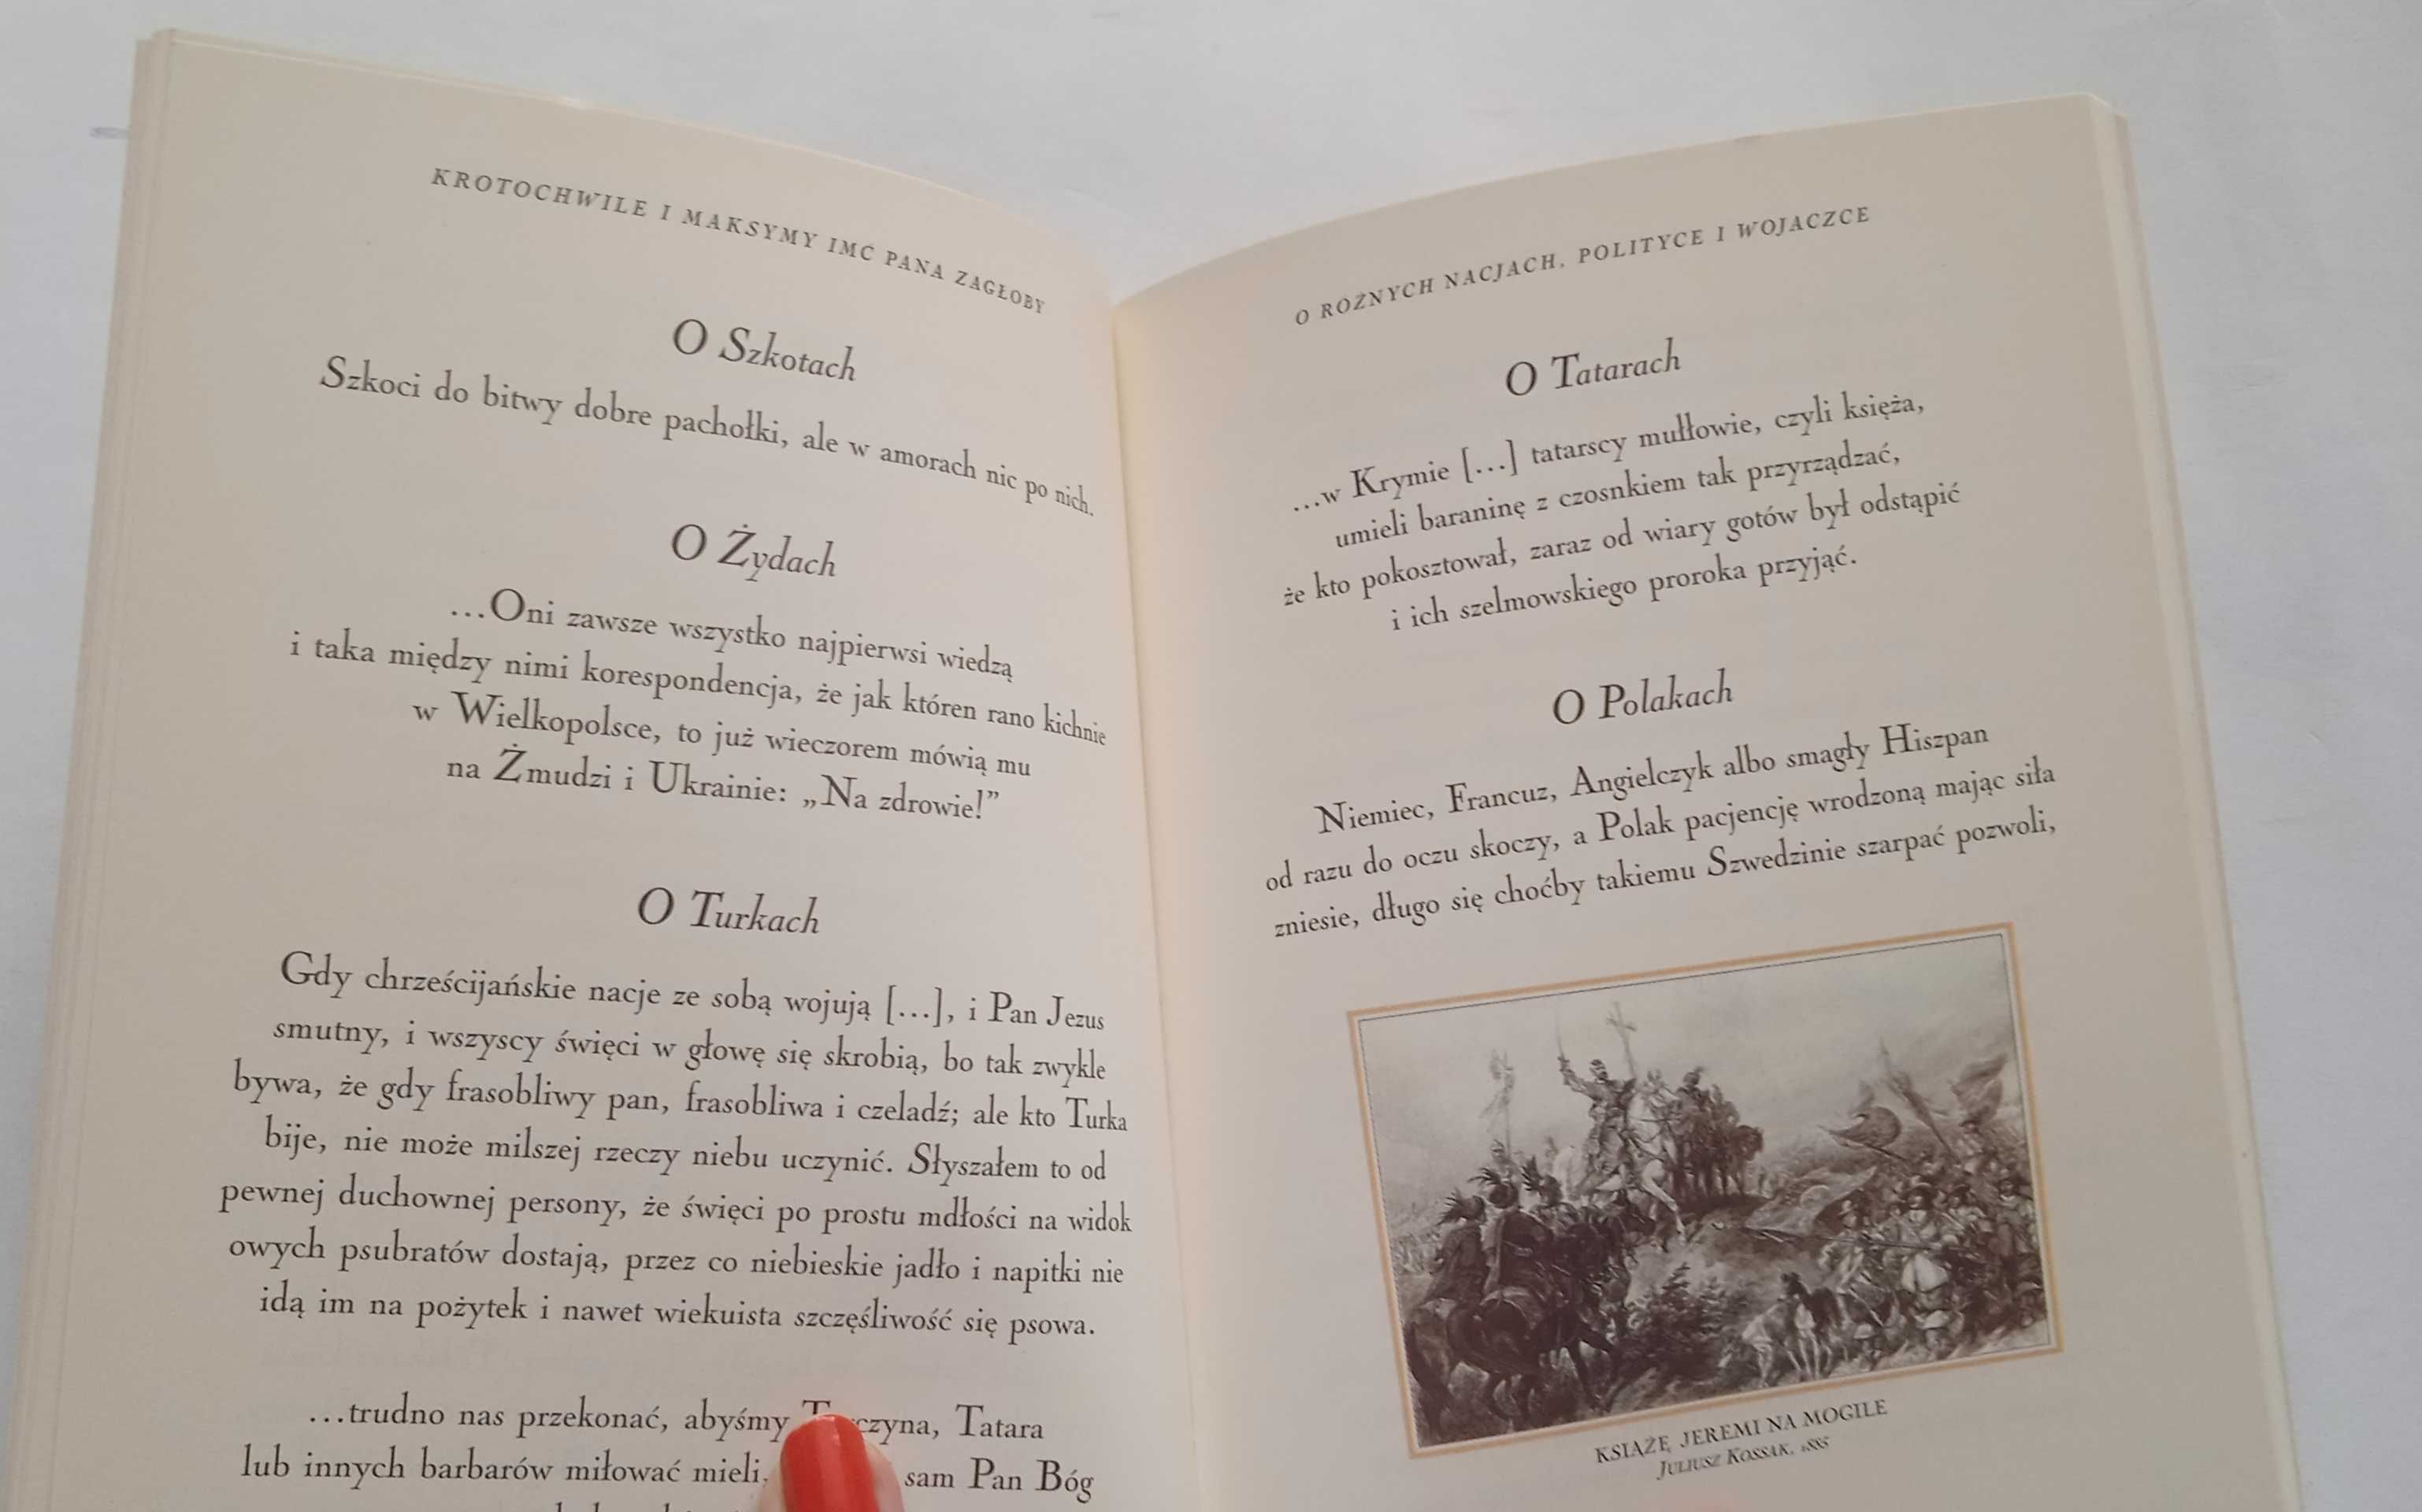 KROTOCHWILE I MAKSYMY IMC PANA ZAGŁOBY
O Szkotach
Szkoci do bitwy dobre pachołki, ale w amorach nic po nich.
O Żydach
...Oni zawsze wszystko najpierwsi wiedzą
i taka między nimi korespondencja, że jak któren rano kichnie
w Wielkopolsce, to już wieczorem mówią mu
na Żmudzi i Ukrainie: „Na zdrowie!”
O Turkach
Gdy chrześcijańskie nacje ze sobą wojują [...], i Pan Jezus
smutny, i wszyscy święci w głowę się skrobią, bo tak zwykle
bywa, że gdy frasobliwy pan, frasobliwa i czeladź; ale kto Turka
bije, nie może milszej rzeczy niebu uczynić. Słyszałem to od
pewnej duchownej persony, że święci po prostu mdłości na widok
owych psubratów dostają, przez co niebieskie jadło i napitki nie
idą im na pożytek i nawet wiekuista szczęśliwość się psowa.
...trudno nas przekonać, abyśmy Tatara
lub innych barbarów miłować mieli, sam Pan Bóg
O RÓŻNYCH NACJACH, POLITYCE I WOJACZCE
O Tatarach
...w Krymie [...] tatarscy mułłowie, czyli księża,
umieli baraninę z czosnkiem tak przyrządzać,
że kto pokosztował, zaraz od wiary gotów był odstąpić
i ich szelmowskiego proroka przyjąć.
O Polakach
Niemiec, Francuz, Angielczyk albo smagły Hiszpan
od razu do oczu skoczy, a Polak pacjencję wrodzoną mając siła
zniesie, długo się choćby takiemu Szwedzinie szarpać pozwoli,
KSIĄŻĘ JEREMI NA MOGILE
JULIUSZ KOSSAK, 1885